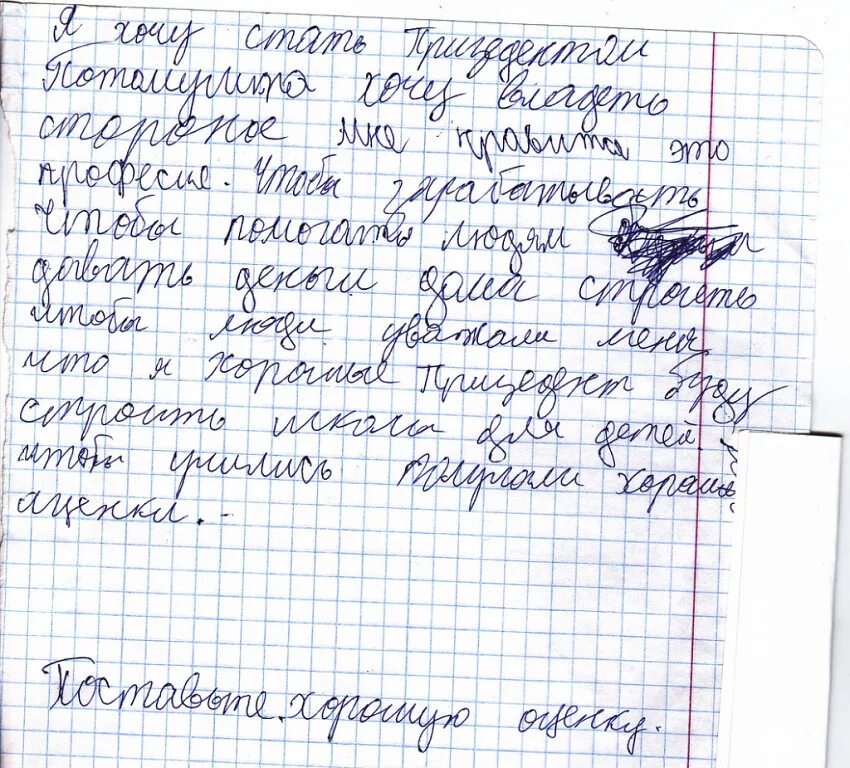 Я хочу стать Призедентом
Потомушто хочу владеть
стороное мне нравится это
професие. Чтобы зарабатывать
Чтобы помогать людям
давать деньги дома строеть
чтобы люди уважали меня
что я хорошые Призедент буду
строить школы для детей
чтобы учились получали хораше
аценки.
Поставьте хорошую оценку.